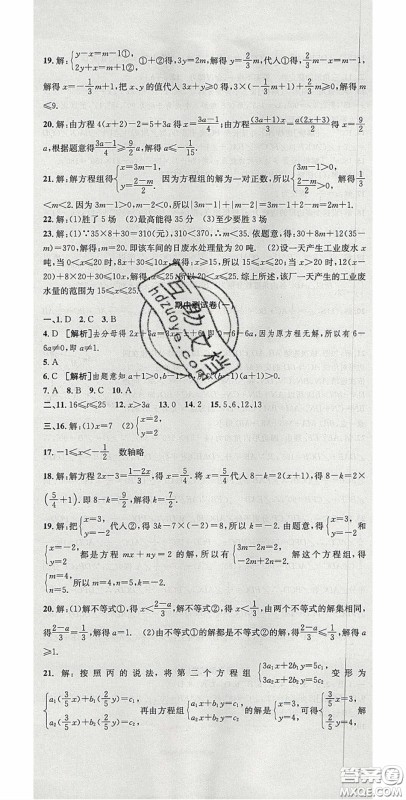 19. 解:{y-x=m-1①, 2y+x=m+1②, ①+②得,3y=2m,解得y=2/3m,代入①得-1/3m=m-1,
解得x=-1/3m+1,把x、y的值代入3x+y≥0得,3×(-1/3m+1)+2/3m≥0,解得m
≤9.
20. 解:由方程4(x+2)-2=5+3a得x=(3a-1)/4;由方程(3a+1)x/3=a(2x+3)/2得x=9/2
a,根据题意得(3a-1)/4≥9/2a,解得a≤-1/15.
21. 解:解方程组得{x=3m-1, y=(2-m)/2. 因为方程组的解为一对正数,所以{3m-1>0, (2-m)/2>0. 解得1/3
<m<2. 因为3m-1>0,m-2<0,所以|3m-1|+|m-2|=3m-1-m+2=2m+1.
22. 解:(1)胜了5场 (2)最高能得35分 (3)至少要胜3场
23. 解:(1)∵35×8+30=310(元),310<370,∴m<35,依题意得,30+8m+12(35-
m)=370,解得m=20. 即该车间的日废水处理量为20吨. (2)设一天产生工业废水x
吨,当0<x≤20时,8x+30≤10x,所以15≤x≤20,当x>20时,12(x
-20)+8×20+30≤10x,所以20<x≤25.综上所述,该厂一天产生的工业废
水量的范围为15≤x≤25.
期中测试卷(一)
一、1. D 2. B 3. D
4. D [解析]去分母得2x+3a=3x,得x=3a.因为原方程无解,所以
6a≠0,即a≠0.
5. C 6. C [解析]由题意知a+1>0,b-1>0,所以a>-1,b>1.
7. A 8. B 9. A 10. A
二、11. 16≤a≤25 12. x>3a 13. 0 14. 2 15. 5,6,12,13
三、16. 解:(1)x=7 (2){x=2, y=2
17. -1≤x<-1/2 数轴略
18. 解:解方程2x-3=1-2x得,x=5/4,将x=5/4代入8-k=2(x+1)得,8-k=2×
(5/4+1). 即8-k=9/2,解得k=7/2
19. 解:把{x=3, y=-2代入②得,3k-7×(-2)=8,解得k=-2. 由题意,得{x=3, y=-2和
{x=-2, y=2都是方程mx+ny=2的解,所以{3m-2n=2, -2m+2n=2.解这个方程组,得
{m=4, n=5,所以m=4,n=5,k=-2.
20. 解:(1)解不等式①,得x<(2-a)/3,解不等式②,得x<1/3,由两个不等式的解集相同,
得(2-a)/3=1/3,解得a=1. (2)由不等式①的解都是不等式②的解,得(2-a)/3≤1/3,解得
a≥1.
21. 解:按照丙的说法,将第二个方程组{3a₁x+2b₁y=5c₁, 3a₂x+2b₂y=5c₂变形为
{a₁(3/5x)+b₁(2/5y)=c₁, a₂(3/5x)+b₂(2/5y)=c₂, 再由方程组{a₁x+b₁y=c₁, a₂x+b₂y=c₂的解是{x=3, y=4,可得{3/5x=3, 2/5y=4, 解
互助文档
hdzuoye.com
答案圈
MXQE.COM